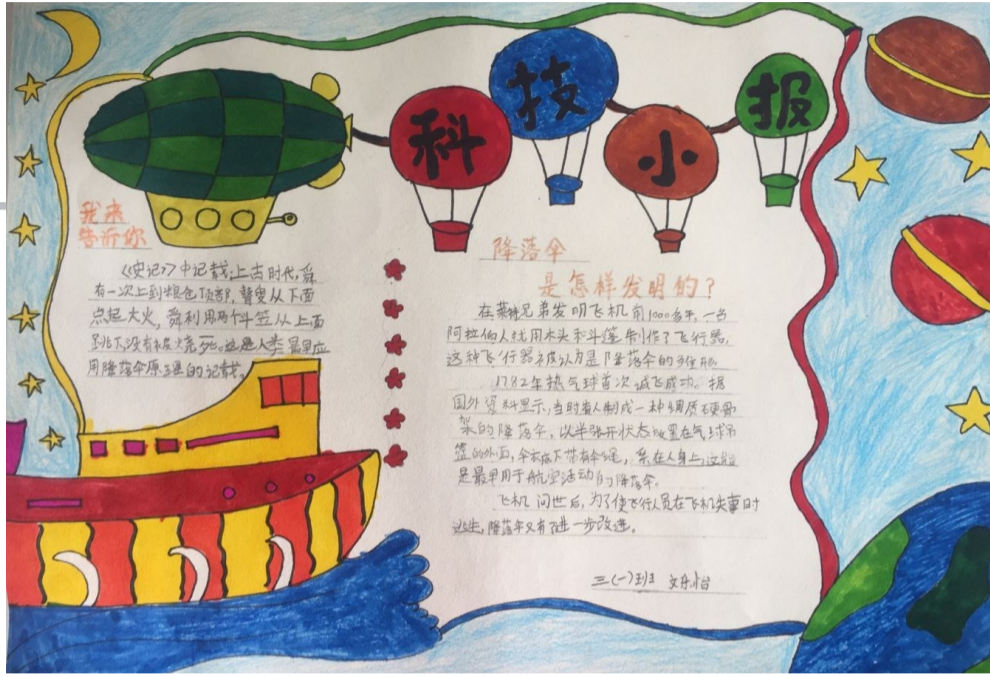 科技小报
我来
告诉你
《史记》中记载:上古时代,舜
有一次上到粮仓顶部,瞽叟从下面
点起大火,舜利用两个斗笠从上面
跳下,没有被烧死。这是人类最早应
用降落伞原理的记载。
降落伞
是怎样发明的?
在莱特兄弟发明飞机前1000多年,一名
阿拉伯人找用木头和斗篷制作了飞行器,
这种飞行器被认为是降落伞的雏形。
1782年热气球首次试飞成功。据
国外资料显示,当时有人制成一种绸质硬骨
架的降落伞,以半张开状态放置在气球吊
篮的外面,伞衣底下带有伞绳,系在人身上,这
是最早用于航空活动的降落伞。
飞机问世后,为了使飞行人员在飞机失事时
逃生,降落伞又有了进一步改进。
三(一)班 文乐怡